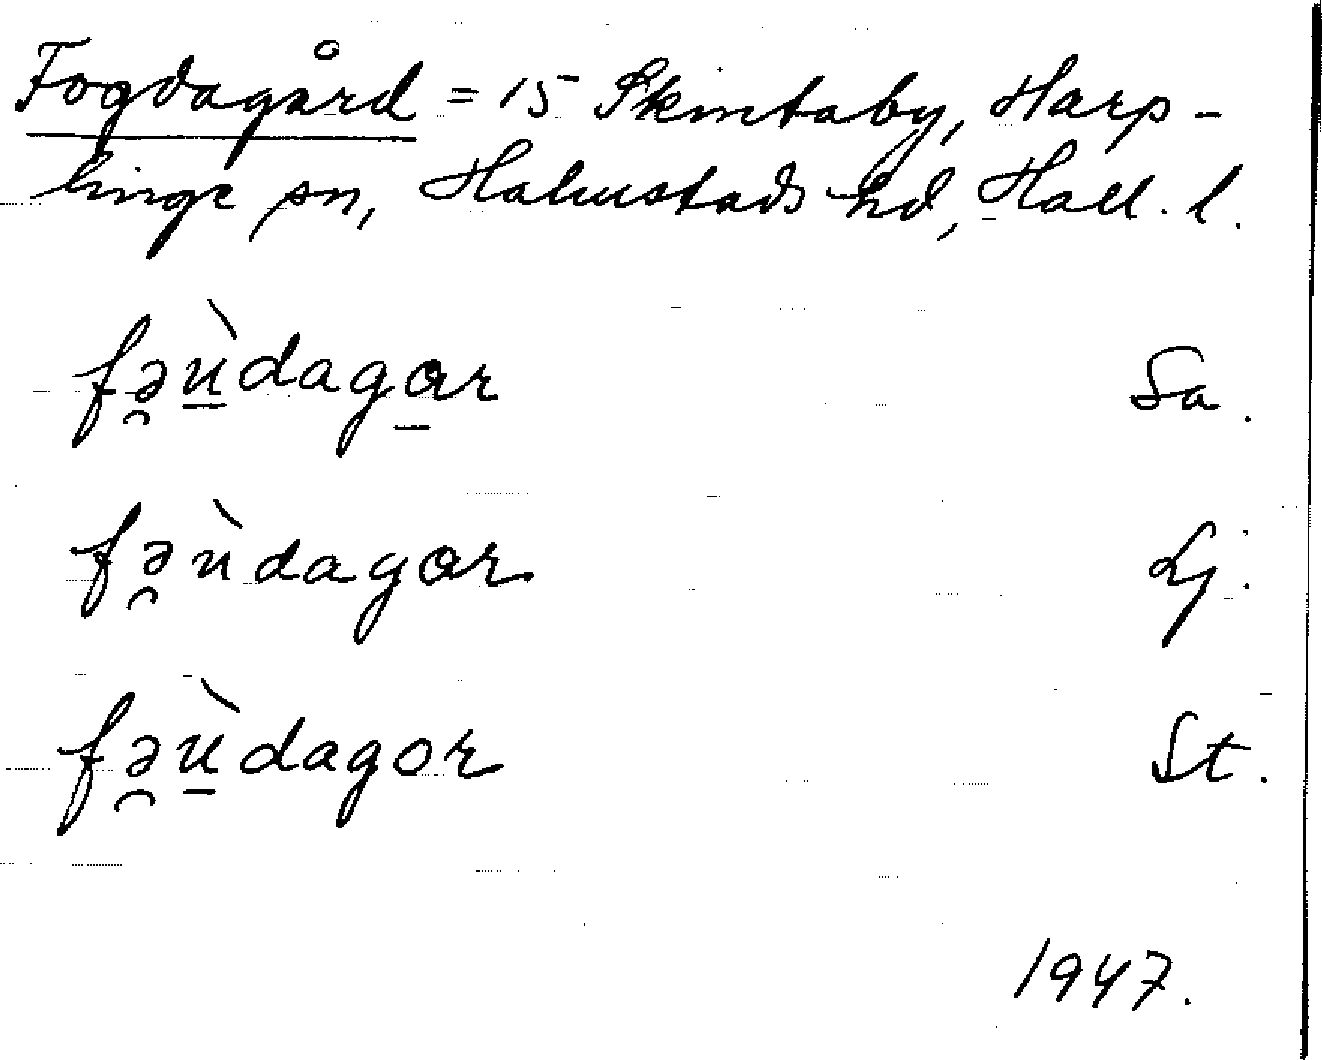 Fogdagård = 15 Skintaby, Harp-
linge sn, Halmstads hd, Hall. l.
fə̯ù̲daga̲r Sa.
fə̯ùdagar Lj.
fə̯ù̲dagor St.
1947.